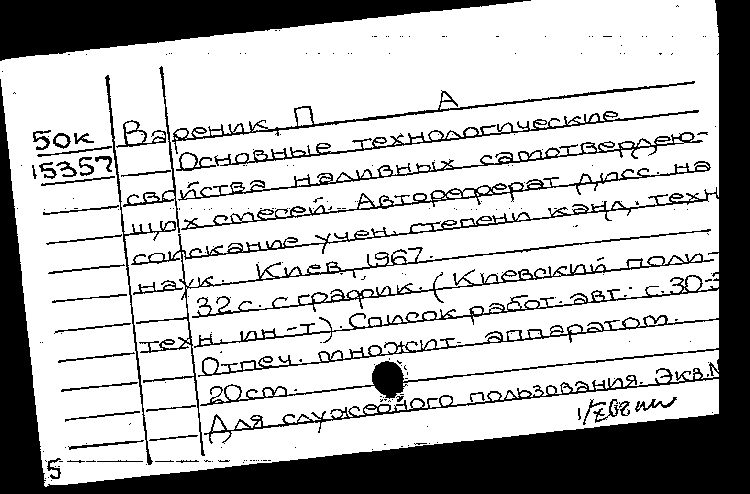 50к Вареник, П А
15357 Основные технологические
свойства наливных самотвердею-
щих смесей. Автореферат дисс. на
соискание учен. степени канд. техн
наук. Киев, 1967.
32 с. с график. (Киевский поли-
техн. ин-т). Список работ. авт.: с. 30-3
Отпеч. множит. аппаратом.
20см.
Для служебного пользования. Экз.№
5